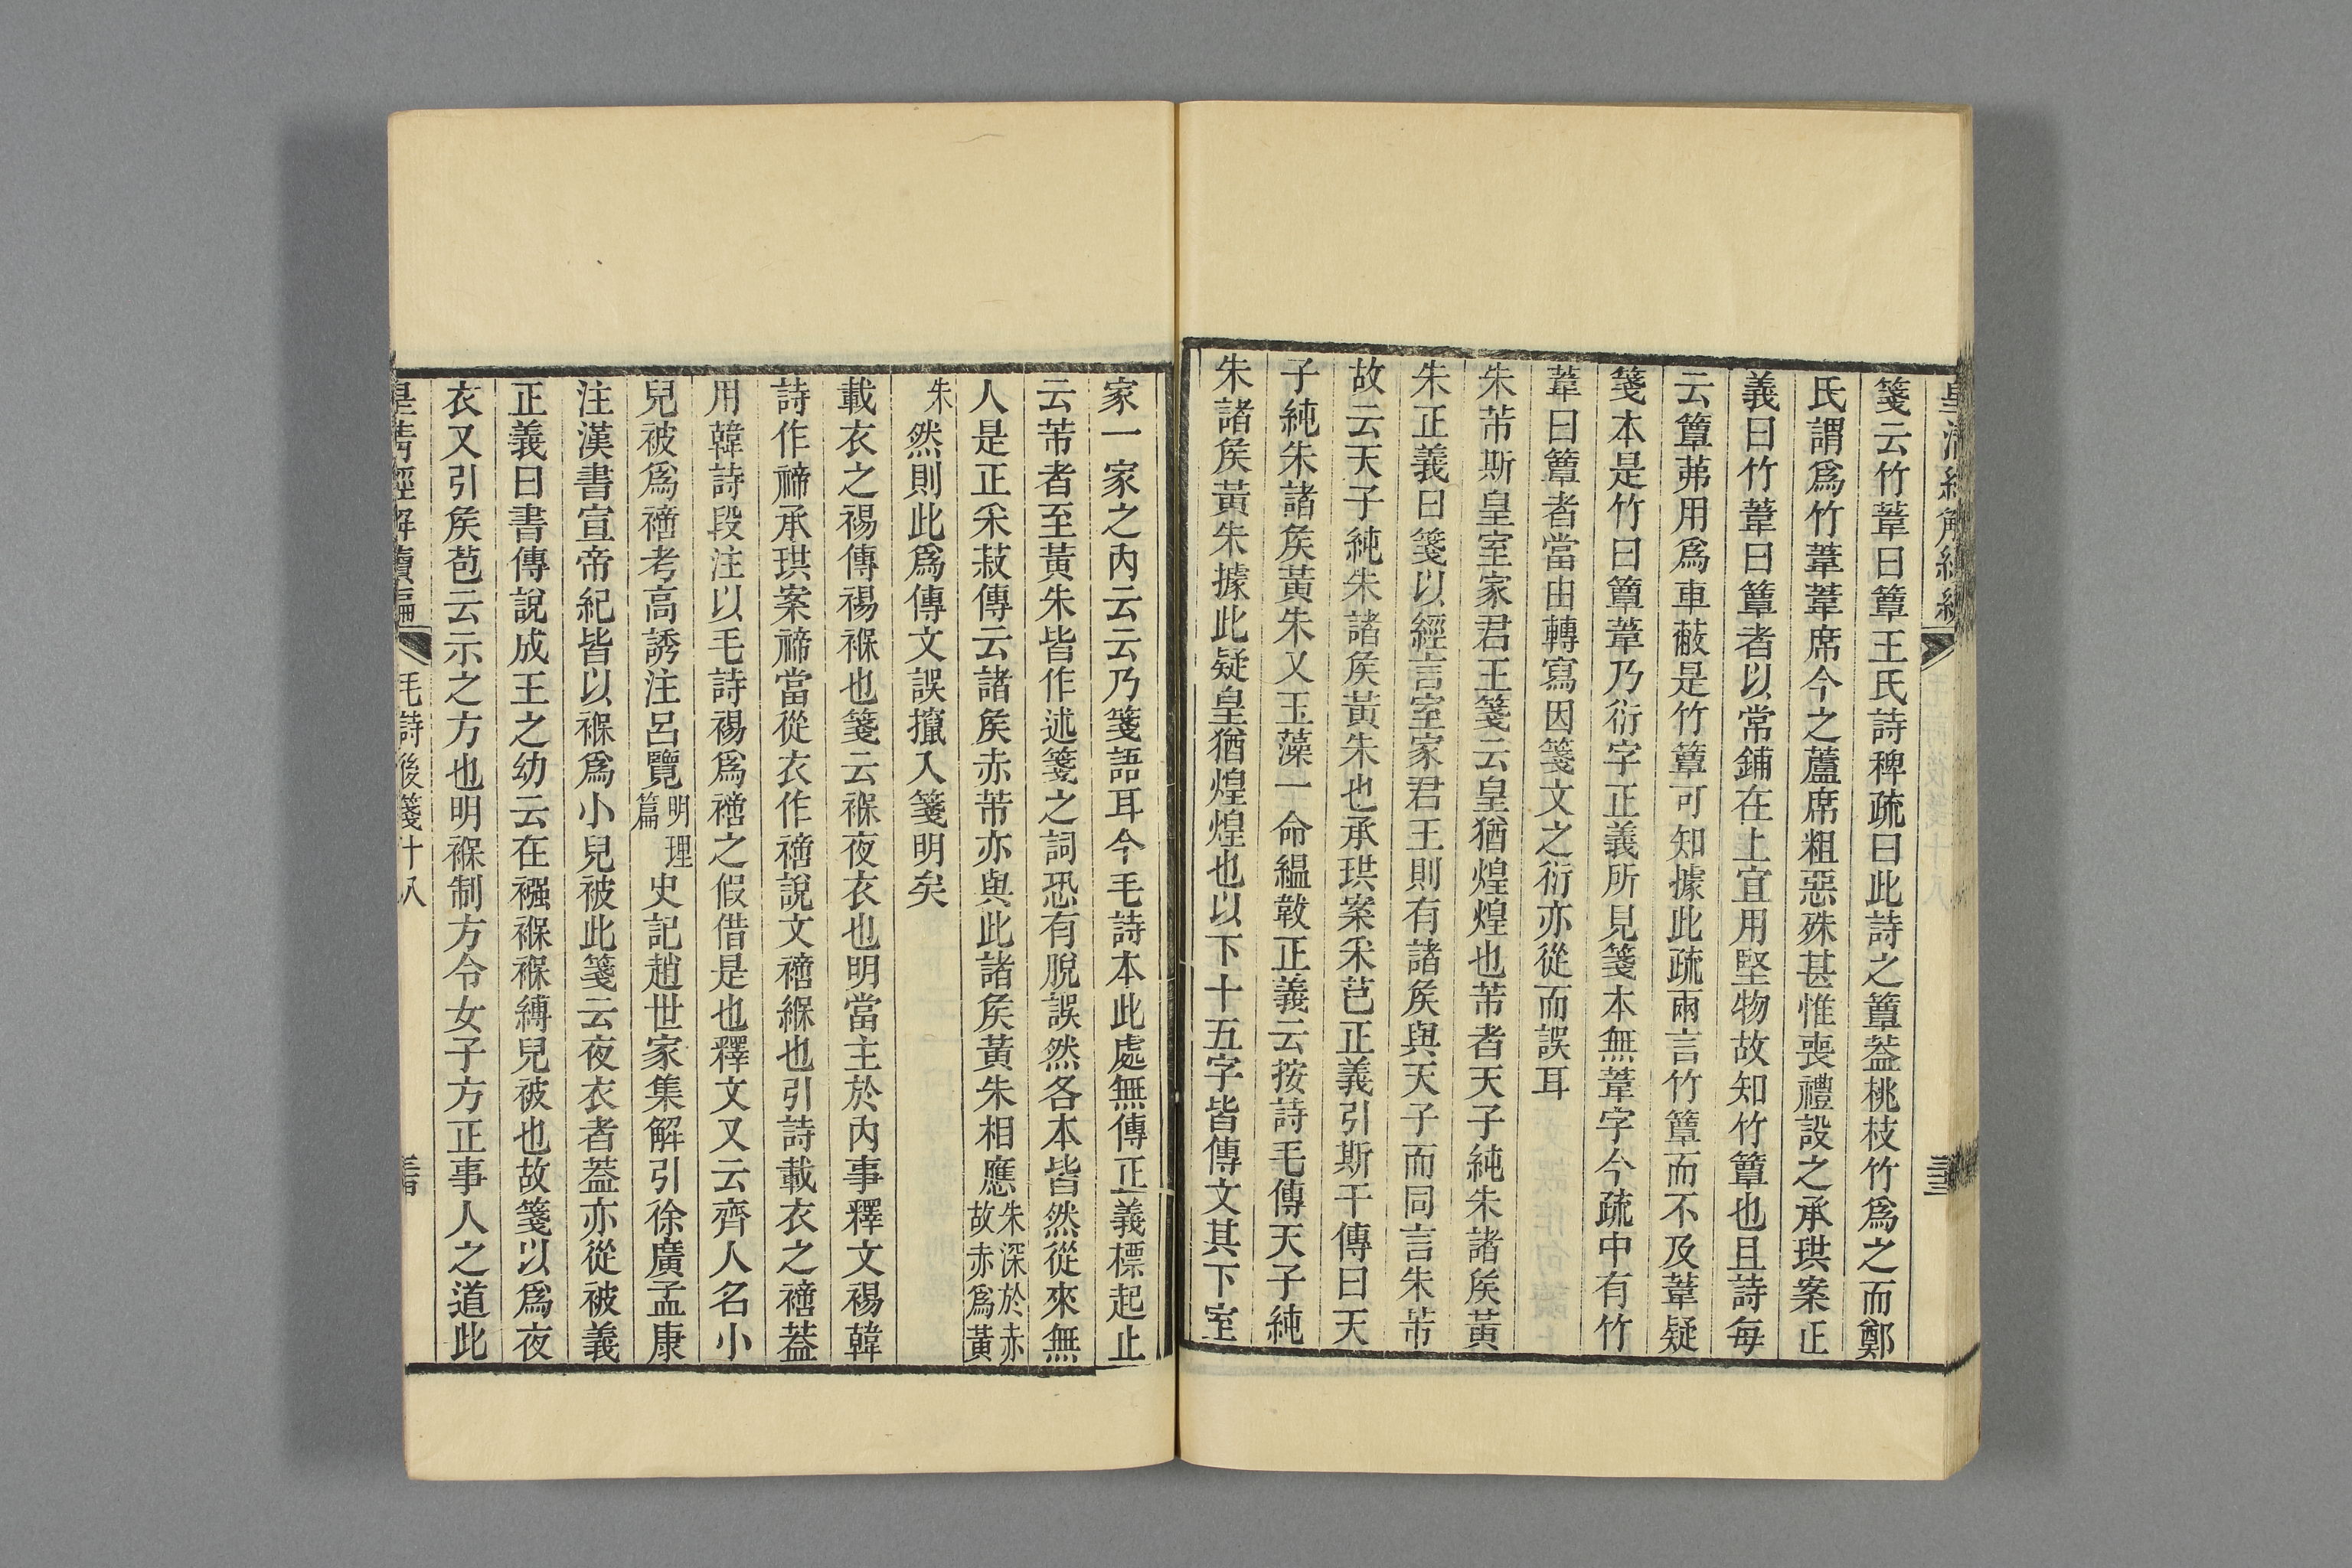 箋云竹葦曰簟王氏詩稗疏曰此詩之簟葢桃枝竹爲之而鄭
氏謂爲竹葦葦席今之蘆席粗惡殊甚惟喪禮設之承珙案正
義曰竹葦曰簟者以常鋪在上宜用堅物故知竹簟也且詩每
云簟茀用爲車蔽是竹簟可知據此疏兩言竹簟而不及葦疑
箋本是竹曰簟葦乃衍字正義所見箋本無葦字今疏中有竹
葦曰簟者當由轉寫因箋文之衍亦從而誤耳
朱芾斯皇室家君王箋云皇猶煌煌也芾者天子純朱諸矦黃
朱正義曰箋以經言室家君王則有諸矦與天子而同言朱芾
故云天子純朱諸矦黃朱也承珙案釆芑正義引斯干傳曰天
子純朱諸矦黃朱又玉藻一命緼韍正義云按詩毛傳天子純
朱諸矦黃朱據此疑皇猶煌煌也以下十五字皆傳文其下室
家一家之內云云乃箋語耳今毛詩本此處無傳正義標起止
云芾者至黃朱皆作述箋之詞恐有脫誤然各本皆然從來無
人是正釆菽傳云諸矦赤芾亦與此諸矦黃朱相應朱深於赤故赤爲黃
朱然則此爲傳文誤攛入箋明矣
載衣之裼傳裼褓也箋云褓夜衣也明當主於內事釋文裼韓
詩作禘承珙案禘當從衣作𧛏說文𧛏緥也引詩載衣之𧛏葢
用韓詩段注以毛詩裼爲𧛏之假借是也釋文又云齊人名小
兒被爲𧛏考高誘注呂覽明理篇史記趙世家集解引徐廣孟康
注漢書宣帝紀皆以褓爲小兒被此箋云夜衣者葢亦從被義
正義曰書傳說成王之幼云在襁褓褓縛兒被也故箋以爲夜
衣又引矦苞云示之方也明褓制方令女子方正事人之道此
皇清經解續編
毛詩後箋十八